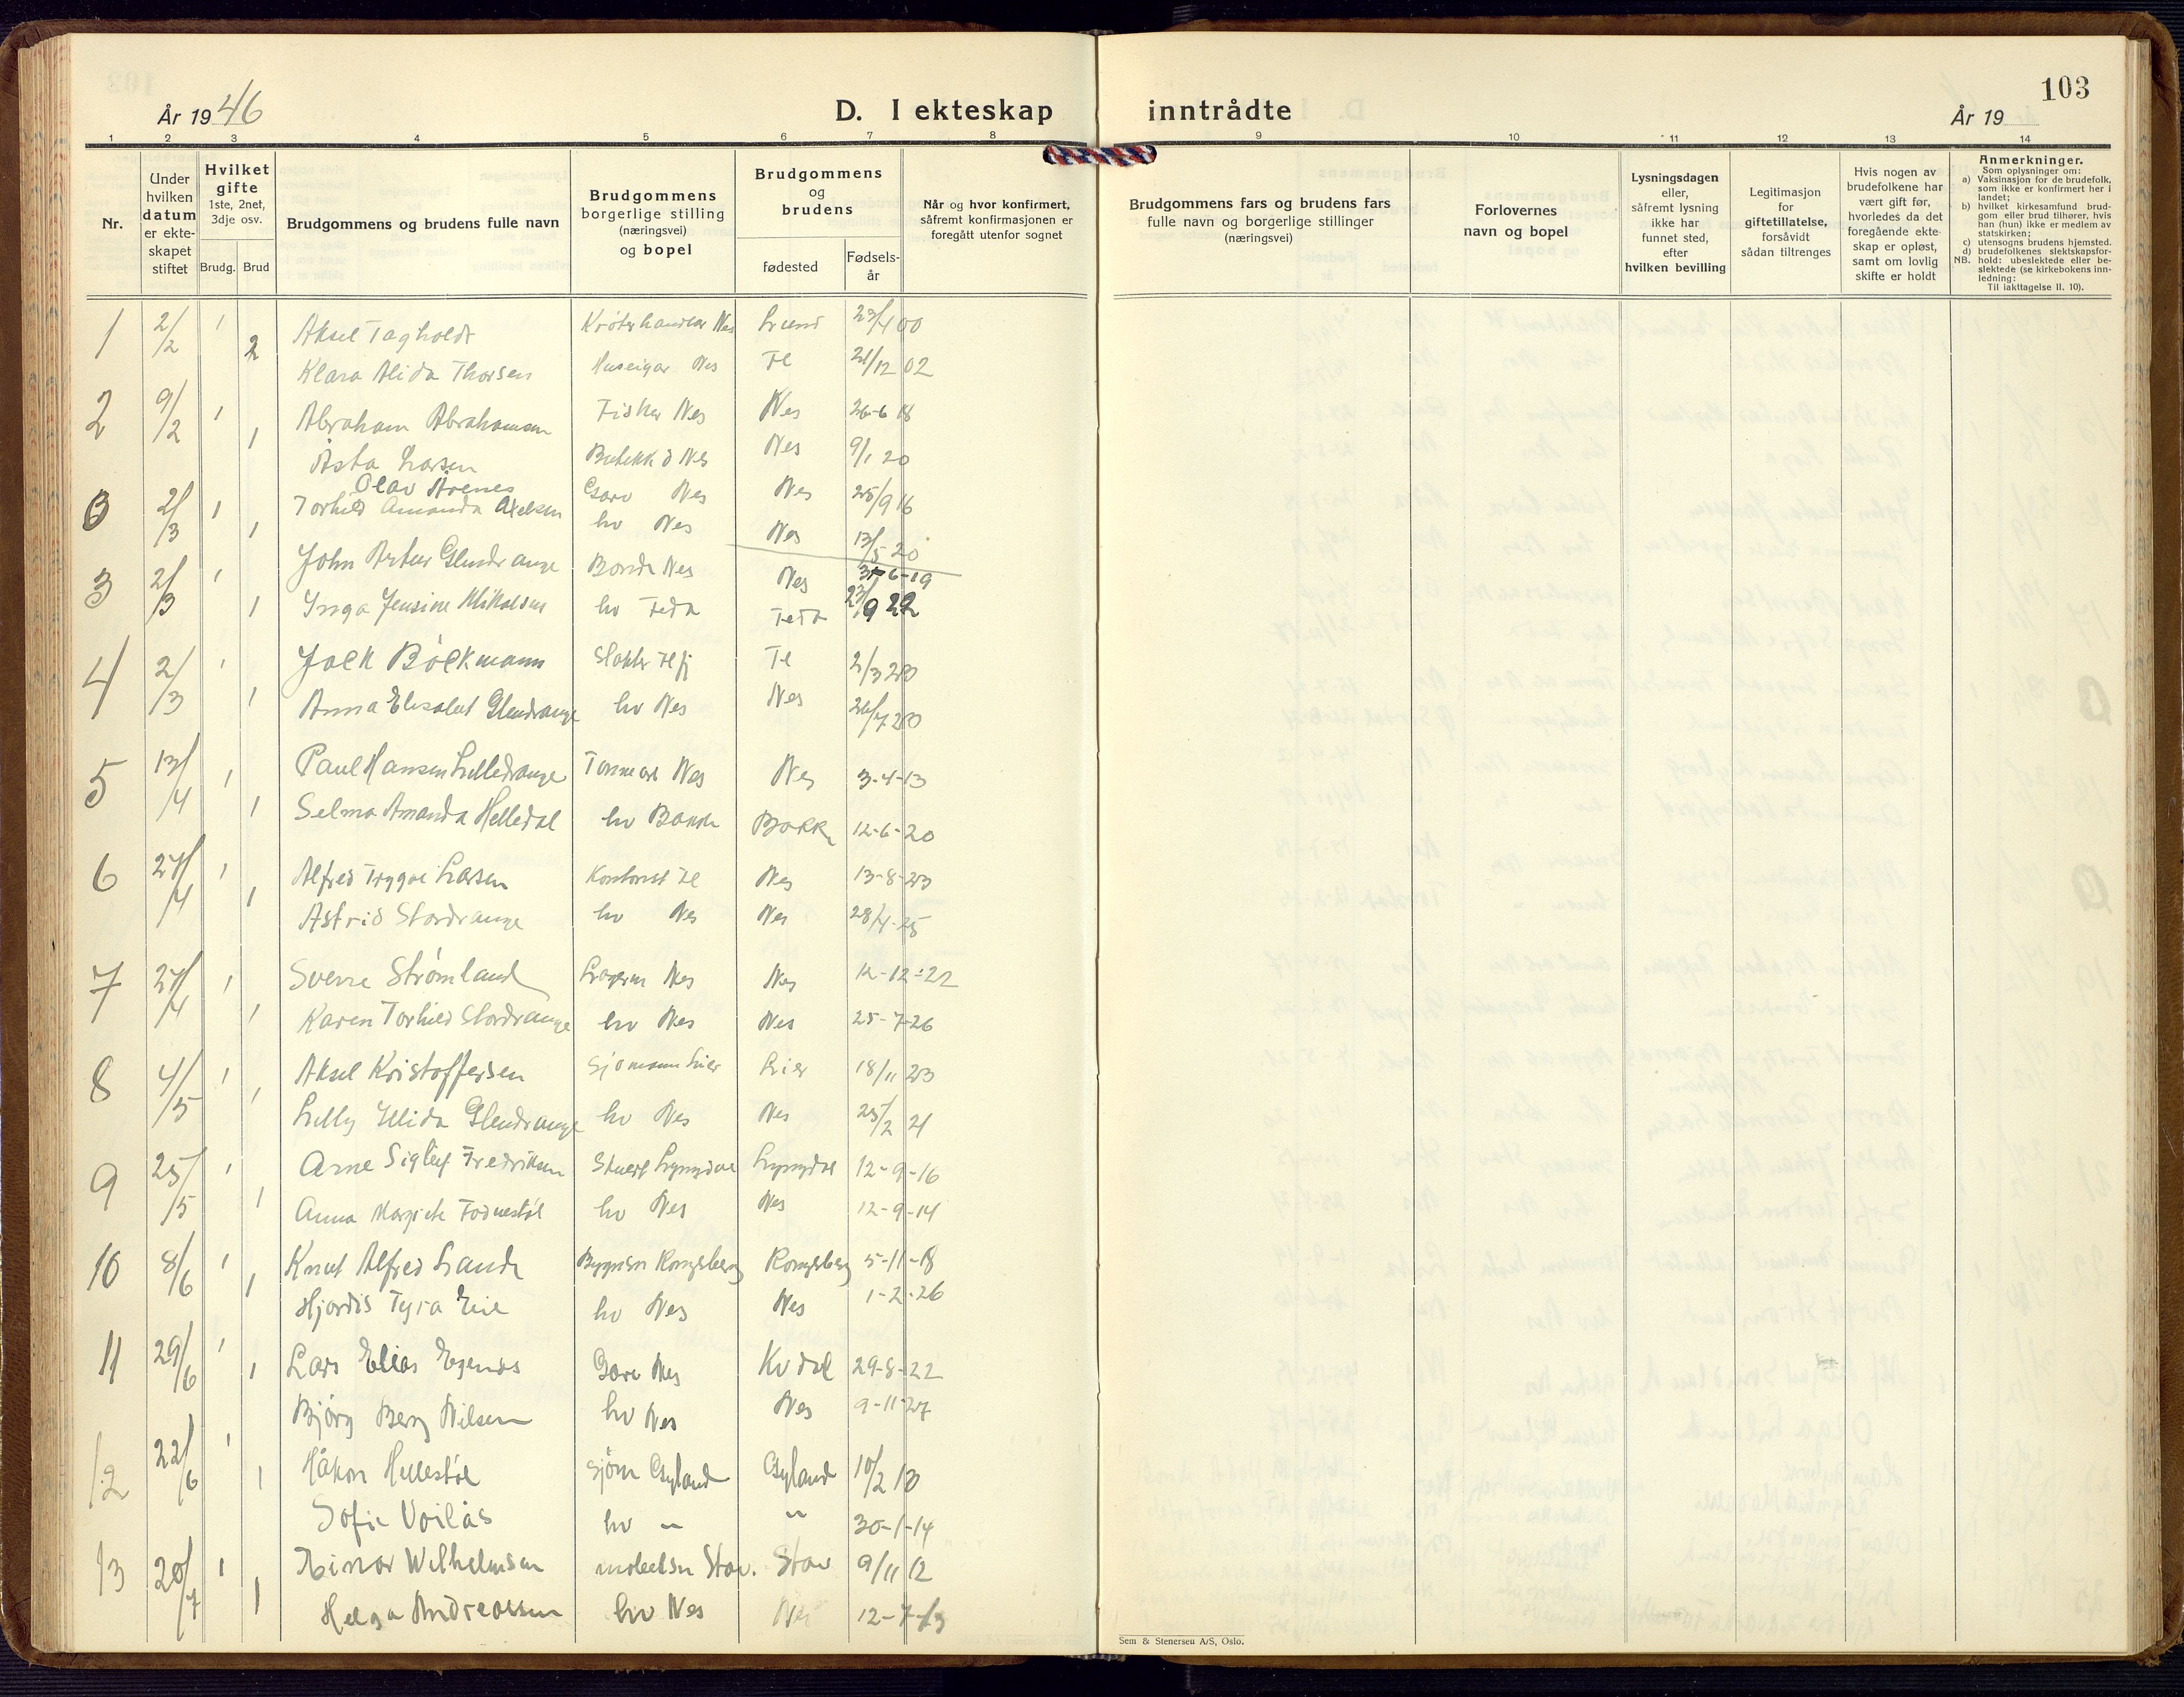 103
År 1946
D. I ekteskap inntrådte
År 19
1 2 3 4 5 6 7 8 9 10 11 12 13 14
Nr.
Under hvilken datum er ekteskapet stiftet
Hvilket gifte 1ste, 2net, 3dje osv.
Brudg. Brud
Brudgommens og brudens fulle navn
Brudgommens borgerlige stilling (næringsvei) og bopel
Brudgommens og brudens
fødested
Fødselsår
Når og hvor konfirmert, såfremt konfirmasjonen er foregått utenfor sognet
Brudgommens fars og brudens fars fulle navn og borgerlige stillinger (næringsvei)
Forlovernes navn og bopel
Lysningsdagen eller, såfremt lysning ikke har funnet sted, efter hvilken bevilling
Legitimasjon for giftetillatelse, forsåvidt sådan tiltrenges
Hvis nogen av brudefolkene har vært gift før, hvorledes da det foregående ekteskap er opløst, samt om lovlig skifte er holdt
Anmerkninger.
Som oplysninger om:
a) Vaksinasjon for de brudefolk, som ikke er konfirmert her i landet;
b) hvilket kirkesamfund brudgom eller brud tilhører, hvis han (hun) ikke er medlem av statskirken;
c) utensogns brudens hjemsted.
d) brudefolkenes slektskapsforhold: ubeslektede eller beslektede (se kirkebokens innledning:
NB. Til iakttagelse II. 10).
1 2/2 1 Aksel Tagholdt Nes Lund 23/4 00
2 Klara Alida Thorsen Huseigar Nes Fl 21/12 02
2 9/2 1 Abraham Abrahamsen Fisker Nes Nes 26-6 18
1 Åsta Larsen Nes Nes 9/1 20
2/3 1 Olav Årenes Garv Nes Nes 25/9 16
1 Torhild Amanda Axelsen hv Nes Nes 13/5 20
3 2/3 1 John Artur Glendrange Bonde Nes Nes 6-19
1 Inga Jensine Mikalsen hv Feda Feda 23/9 22
4 2/3 1 Bøckmann Fl 2/3 20
1 Anna Elisabet Glendrange hv Nes Nes 7 20
5 13/4 1 Paul Hansen Lilledrange Nes Nes 3-4-13
1 Selma Amanda Helledal hv Bakke Bakke 12-6-20
6 27/4 1 Alfred Trygve Larsen Kontorist Fl Nes 13-8-23
1 Astrid Stordrange hv Nes Nes 28/4-25
7 27/4 1 Sverre Strømland Nes Nes 12-12-22
1 Karen Torhild Stordrange hv Nes Nes 25-7-26
8 4/5 1 Aksel Kristoffersen Sjømann Lier Lier 18/11 23
1 Lilly Elida Glendrange hv Nes Nes 25/2 21
9 25/5 1 Arne Sigleif Fredriksen Stuert Lyngdal Lyngdal 12-9-16
1 Anna Margrete Fodnestøl hv Nes Nes 12-9-14
10 8/6 1 Knut Alfred Lande Kongsberg Kongsberg 5-11-18
1 Hjordis Tyra Eie hv Nes Nes 1-2-26
11 29/6 1 Lars Elias Egenes Garv Nes Kvdal 29-8-22
1 Bjørg Berg Nilsen hv Nes Nes 9-11-27
12 22/6 1 Håkon Hellestøl Sjøm Gyland Gyland 10/2 13
1 Sofie Voilås hv " " 30-1-14
13 20/7 1 Einar Wilhelmsen Stav. Stav 9/11 12
1 Helga Andreassen hv Nes Nes 12-7-13
Sem & Stenersen A/S, Oslo.